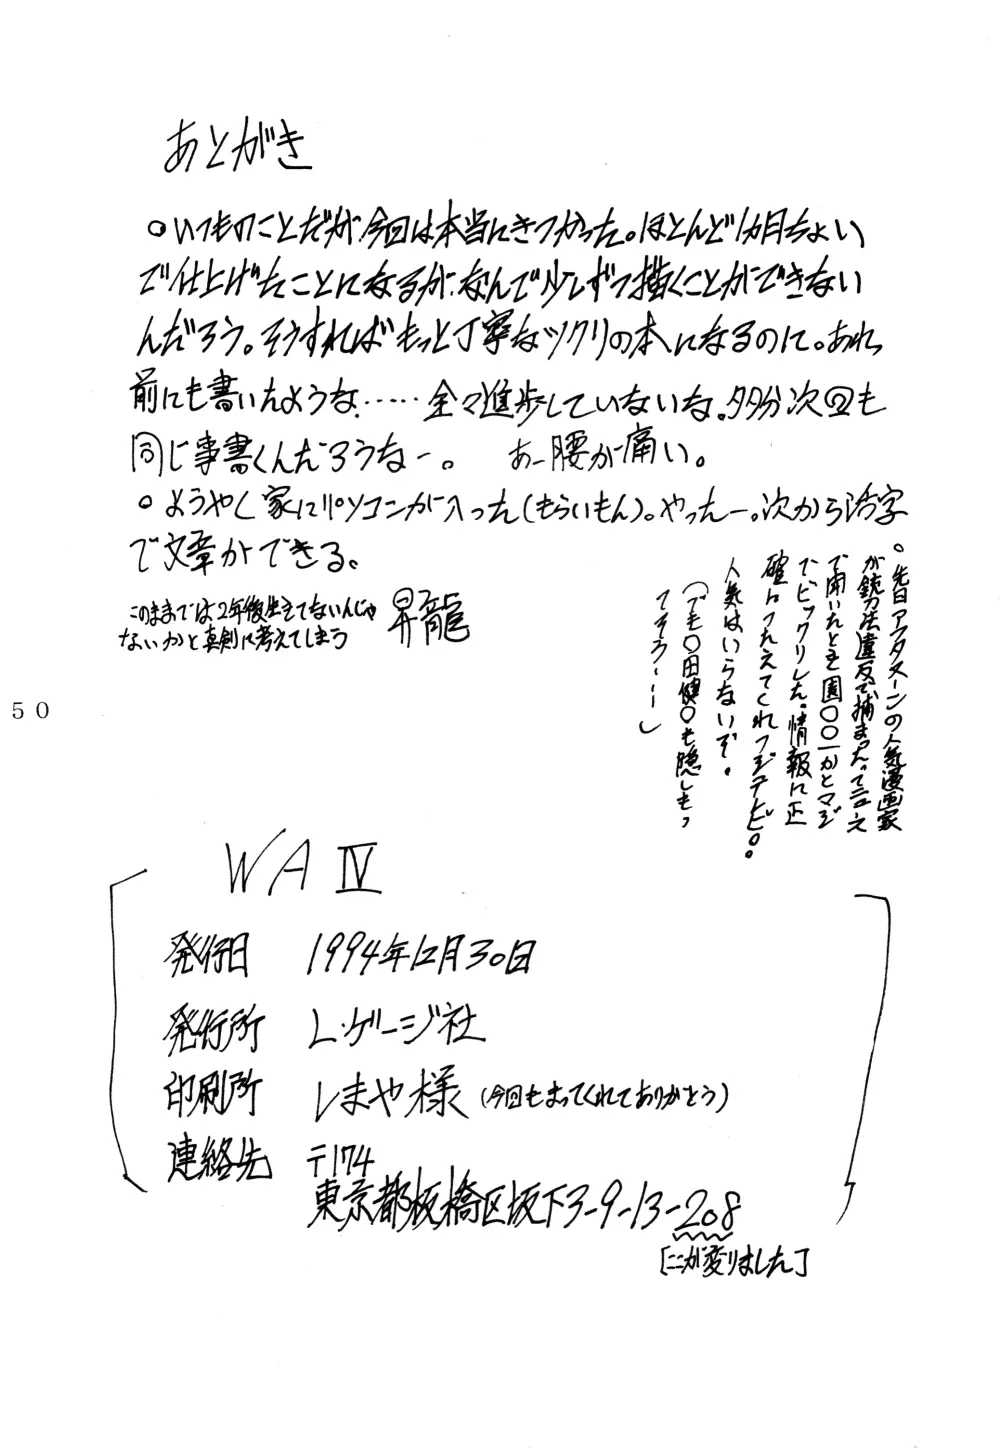 あとがき
○いつものことだが今回は本当にきつかった。ほとんど1カ月ちょい
で仕上げたことになるが、なんで少しずつ描くことができない
んだろう。そうすればもっと丁寧なツクリの本になるのに。あれ
前にも書いたような……全々進歩していないな。多分次回も
同じ事書くんだろうなー。 あー腰が痛い。
○ようやく家にパソコンが入った(もらいもん)。やったー。次から活字
で文章ができる。
このままでは2年後生きてないんじゃ
ないかと真剣に考えてしまう
昇龍
○先日アフタヌーンの人気漫画家
が銃刀法違反で捕まったってニュース
で聞いたとき園○○一かとマジ
でビックリした。情報は正
確につたえてくれフジテレビ。
人気はいらないぞ。
(でも○田健○も隠しもっ
てそう───)
50
WA Ⅳ
発行日 1994年12月30日
発行所 L・ゲージ社
印刷所 しまや様(今回もまってくれてありがとう)
連絡先 〒174
東京都板橋区坂下3-9-13-208
[ここが変りました]